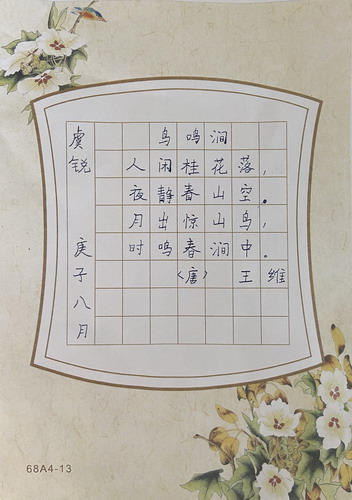 鸟鸣涧
人闲桂花落，
夜静春山空。
月出惊山鸟，
时鸣春涧中。
＜唐＞ 王维
虞锐 庚子八月
68A4-13